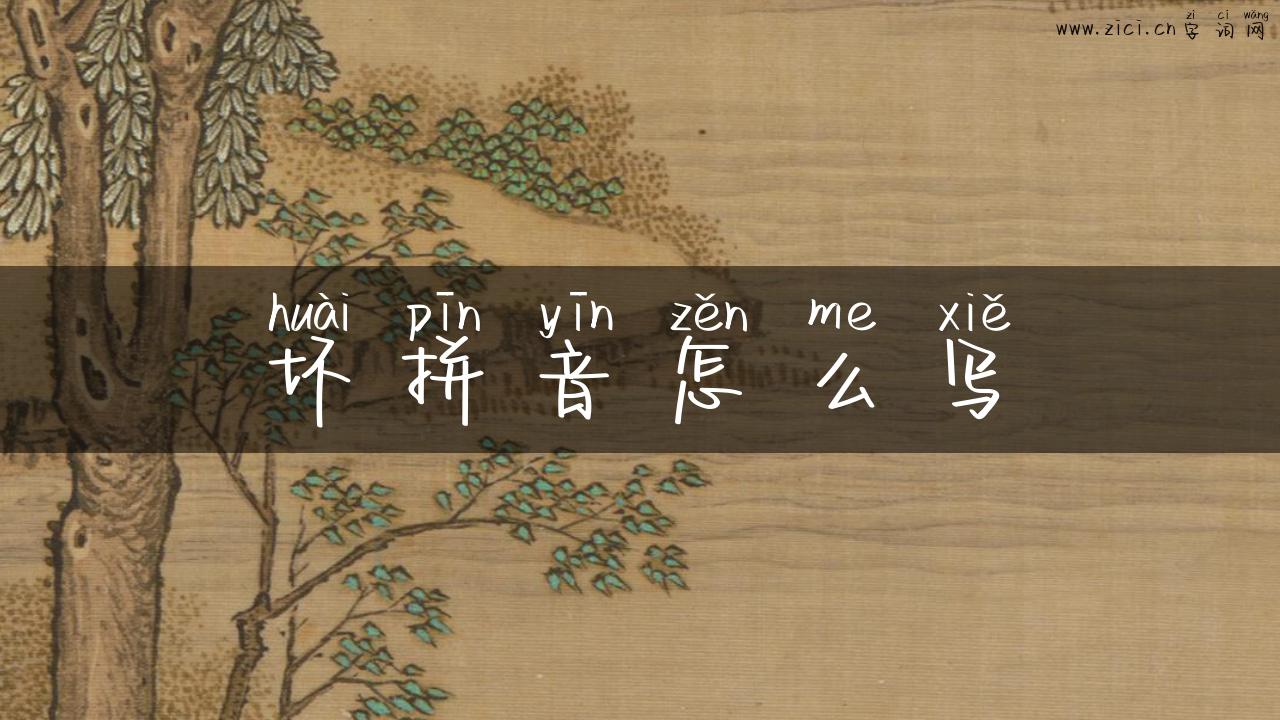 zì cí wǎng
www.zici.cn 字词网
huài pīn yīn zěn me xiě
坏拼音怎么写